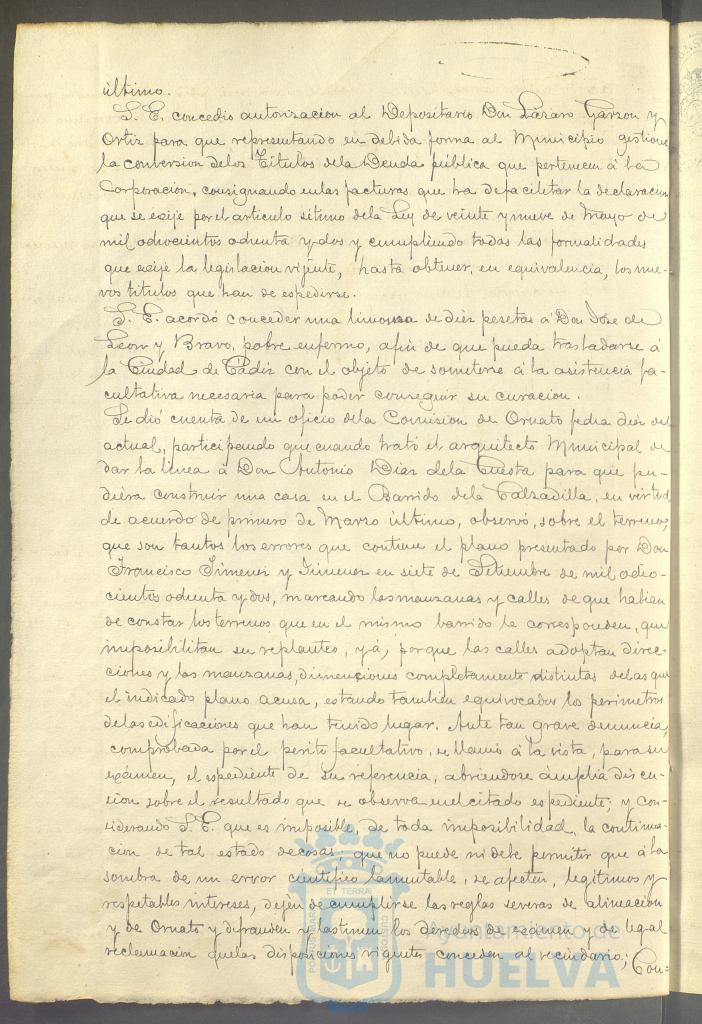 último.
S. E. concedió autorizacion al Depositario Don Lázaro Garzon y
Ortiz para que representando en debida forma al Municipio gestione
la conversion delos Títulos dela Deuda pública que pertenecen á la
Corporacion, consignando enlas facturas que ha defacilitar la declaracion
que se exije por el articulo sétimo dela Ley de veinte y nueve de Mayo de
mil odrocientos odrenta y dos y cumpliendo todas las formalidades
que exije la legislacion vijente, hasta obtener, en equivalencia, los nue-
vos titulos que han de espedirse.
S. E. acordó conceder una limosna de diez pesetas á Don José de
Leon y Bravo, pobre enfermo, afin de que pueda trasladarse á
la Ciudad de Cádiz con el objeto de someterse á la asistencia fa-
cultativa necesaria para poder conseguir su curacion.
Se dió cuenta de un oficio dela Comision de Ornato fedra diez del
actual, participando que cuando trató el arquitecto Municipal de
dar la línea á Don Antonio Diaz dela Cuesta para que pu-
diera construir una casa en el Barrido dela Calzadilla, en virtud
de acuerdo de primero de Marzo último, observó, sobre el terreno,
que son tantos los errores que contiene el plano presentado por Don
Francisco Jimenez y Jimenez en siete de Setiembre de mil odro-
cientos odrenta y dos, marcando las manzanas y calles de que habian
de constar los terrenos que en el mismo barrido le corresponden, que
imposibilitan su replanteo, yá, porque las calles adoptan direc-
ciones y las manzanas, dimenciones completamente distintas delas que
el indicado plano acusa, estando tambien equivocados los perimetros
delas edificaciones que han tenido lugar. Ante tan grave denuncia,
comprobada por el perito facultativo, se llamó á la vista, para su
exámen, el espediente de su referencia, abriendose ámplia discu-
cion sobre el resultado que se observa enel citado espediente; y con-
siderando S. E. que es imposible, de toda imposibilidad, la continua-
cion de tal estado decosas, que no puede ni debe permitir que á la
sombra de un error cientifico lamentable, se afecten, legítimos y
respetables intereses, dejen de cumplirse las reglas severas de alineacion
y de Ornato y difrauden y lastimen los derechos de examen y de legal
reclamacion quelas disposiciones vigentes conceden al vecindario; Con-
Ayuntamiento de
HUELVA